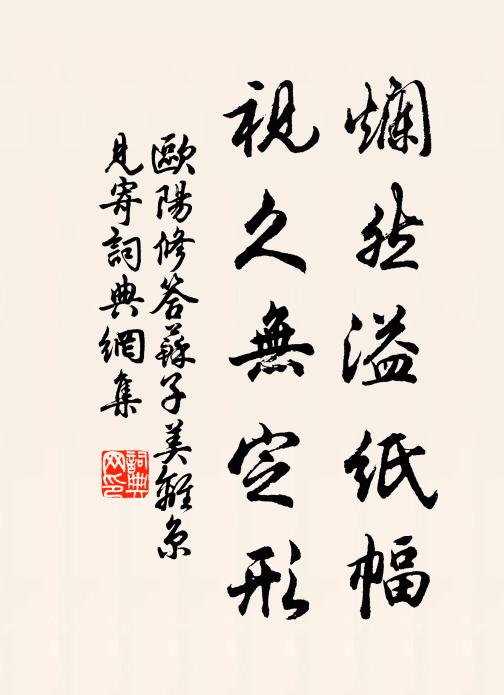 爛然溢紙幅
視久無定形
歐陽修答蘇子美離京
見寄詞典網集
詞典
网印